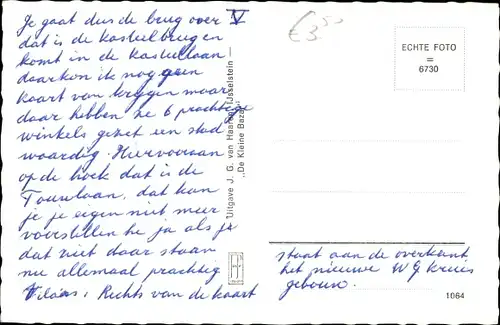 Je gaat dus de brug over V
dat is de kasteelbrug en
komt in de kasteellaan
daarkon ik nog geen
kaart van krijgen maar
daar hebben ze 6 prachtige
winkels gezet een stad
waardig. Hiervooraan
op de hoek dat is de
Touwlaan, dat kan
je je eigen niet meer
voorstellen he ja als je
dat ziet daar staan
nu allemaal prachtig
Vilaas, Rechts van de kaart
Uitgave J. G. van Haaften, IJsselstein —
„De Kleine Bazar"
€3,50
ECHTE FOTO
=
6730
staat aan de overkant
het nieuwe W G Kruis
gebouw.
1064